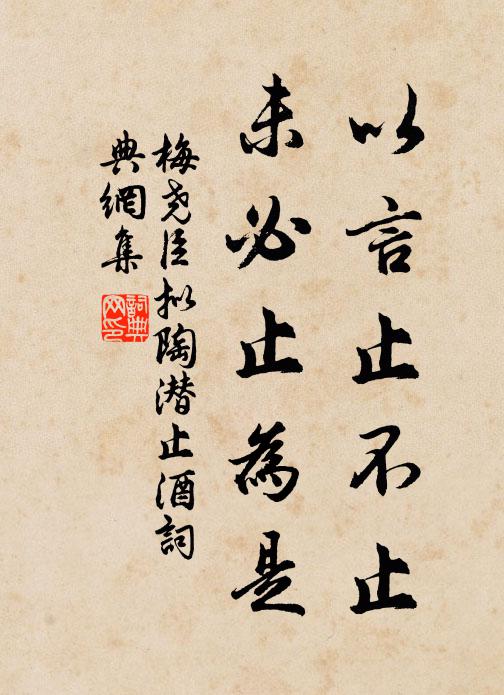 以言止不止
未必止為是
梅尧臣拟陶潜止酒詞
典網集
詞典网印